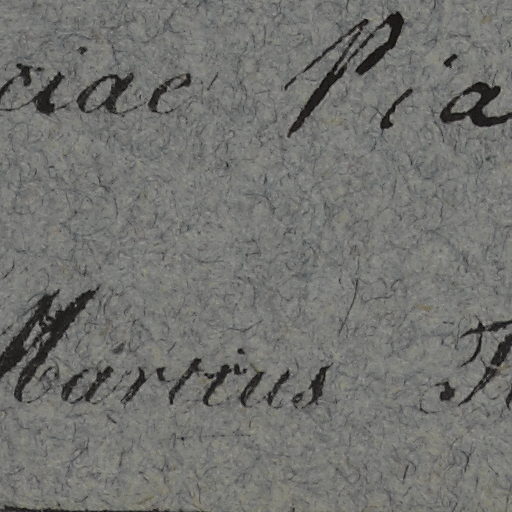 ciae Pia
Martius